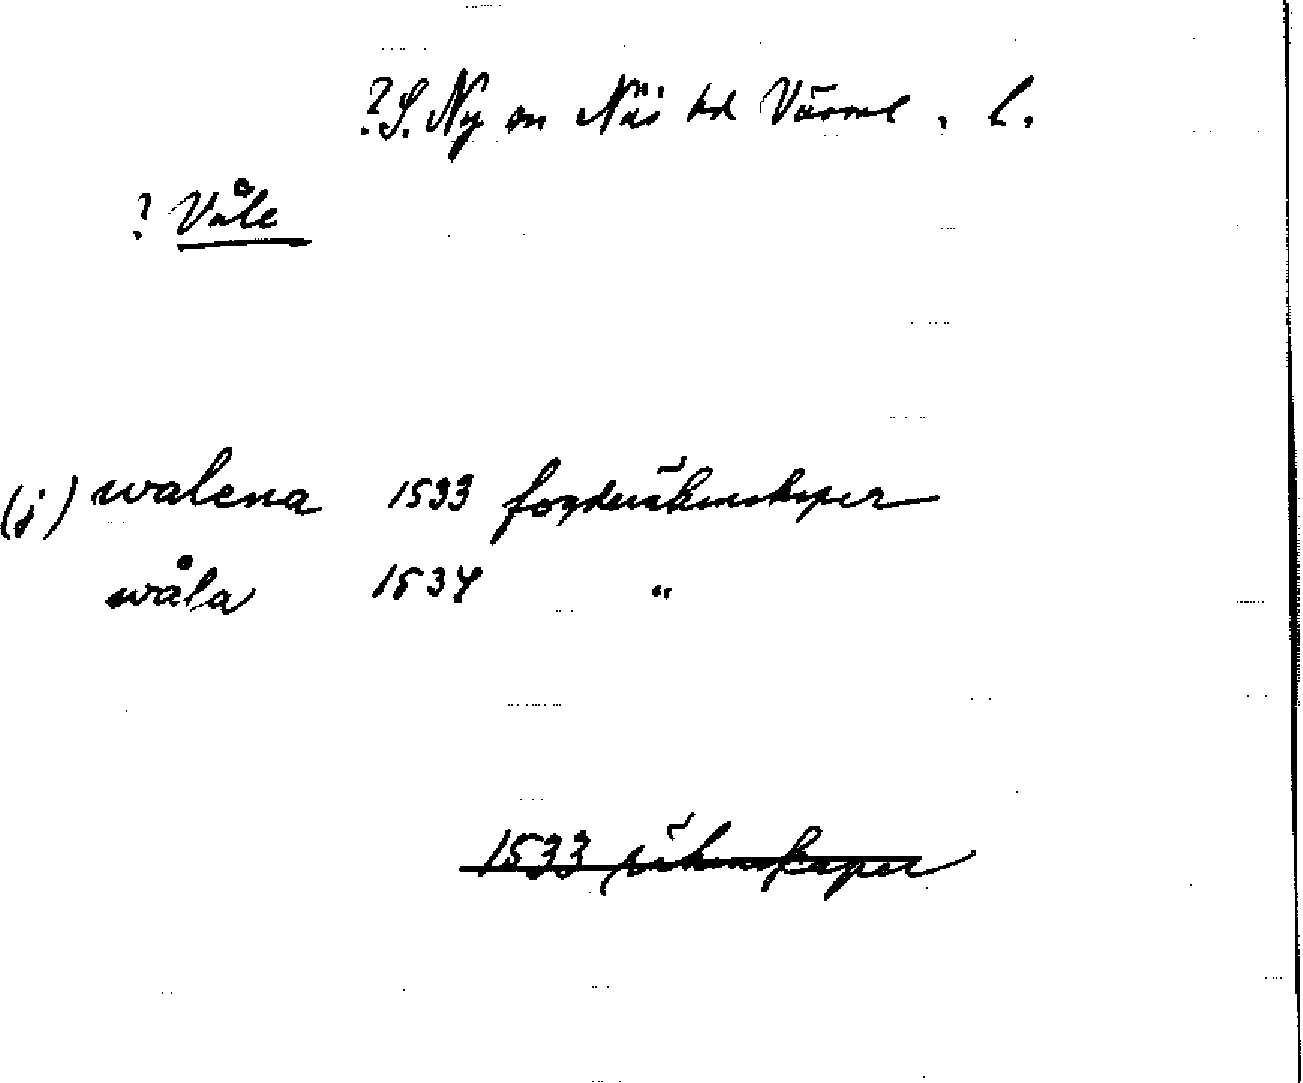 ?S. Ny sn Näs hd Värml. l.
? Våle
(j) walena 1533 fogderäkenskaper
wåla 1534 "
1533 räkenskaper